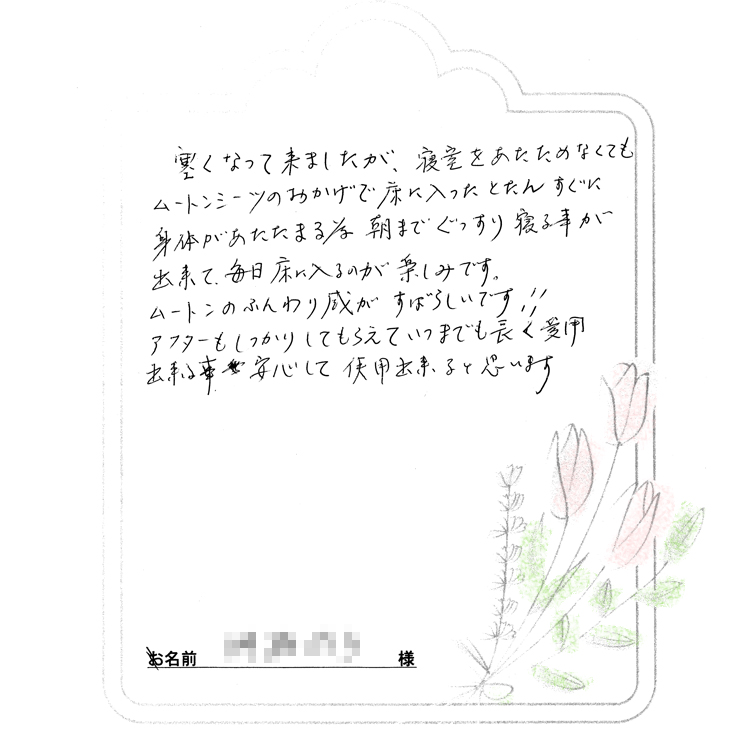 寒くなって来ましたが、寝室をあたためなくても
ムートンシーツのおかげで床に入ったとたんすぐに
身体があたたまる為 朝までぐっすり寝る事が
出来て、毎日床に入るのが楽しみです。
ムートンのふんわり感がすばらしいです!!
アフターもしっかりしてもらえていつまでも長く愛用
出来る事 安心して使用出来ると思います
お名前 様